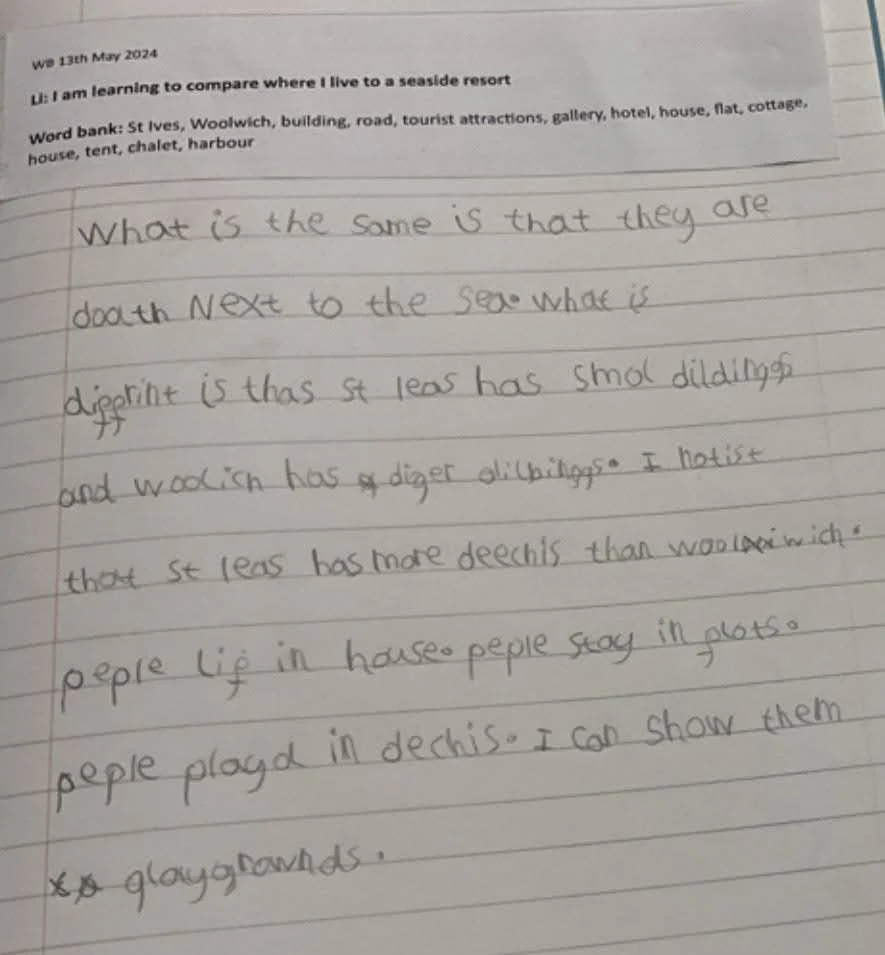 WB 13th May 2024
LI: I am learning to compare where I live to a seaside resort
Word bank: St Ives, Woolwich, building, road, tourist attractions, gallery, hotel, house, flat, cottage,
house, tent, chalet, harbour
What is the same is that they are
doath Next to the sea. what is
is thas st leas has smol dildings
and woolich has diger I notist
that st leas has more deechis than
peple lif in house. peple stay in flots.
peple playd in dechis. I can show them
glaygrownds.